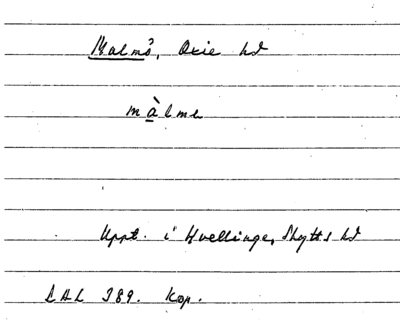 Malmö, Oxie hd
màlme
Uppt. i Hvellinge, Skytts hd
LAL 389. Kop.